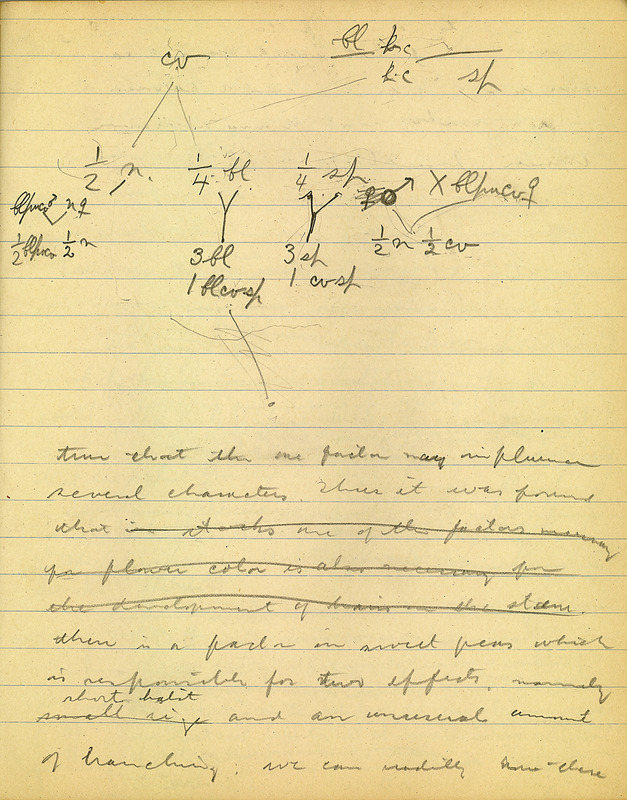 cv
bl bc
bc sp
1/2 n. 1/4 bl 1/4 sp X blpncv ♀
n ♀
1/2 1/2 n 3 bl 3 sp 1/2 n 1/2 cv
1 blcvsp 1 cvsp
true that the one factor may influence
several characters. Thus it was found
that in stocks one of the factors necessary
for flower color is also necessary for
the development of hairs on the stem.
there is a factor in sweet peas which
is responsible for two effects, namely
short habit
small size and an unusual amount
of branching. we can readily